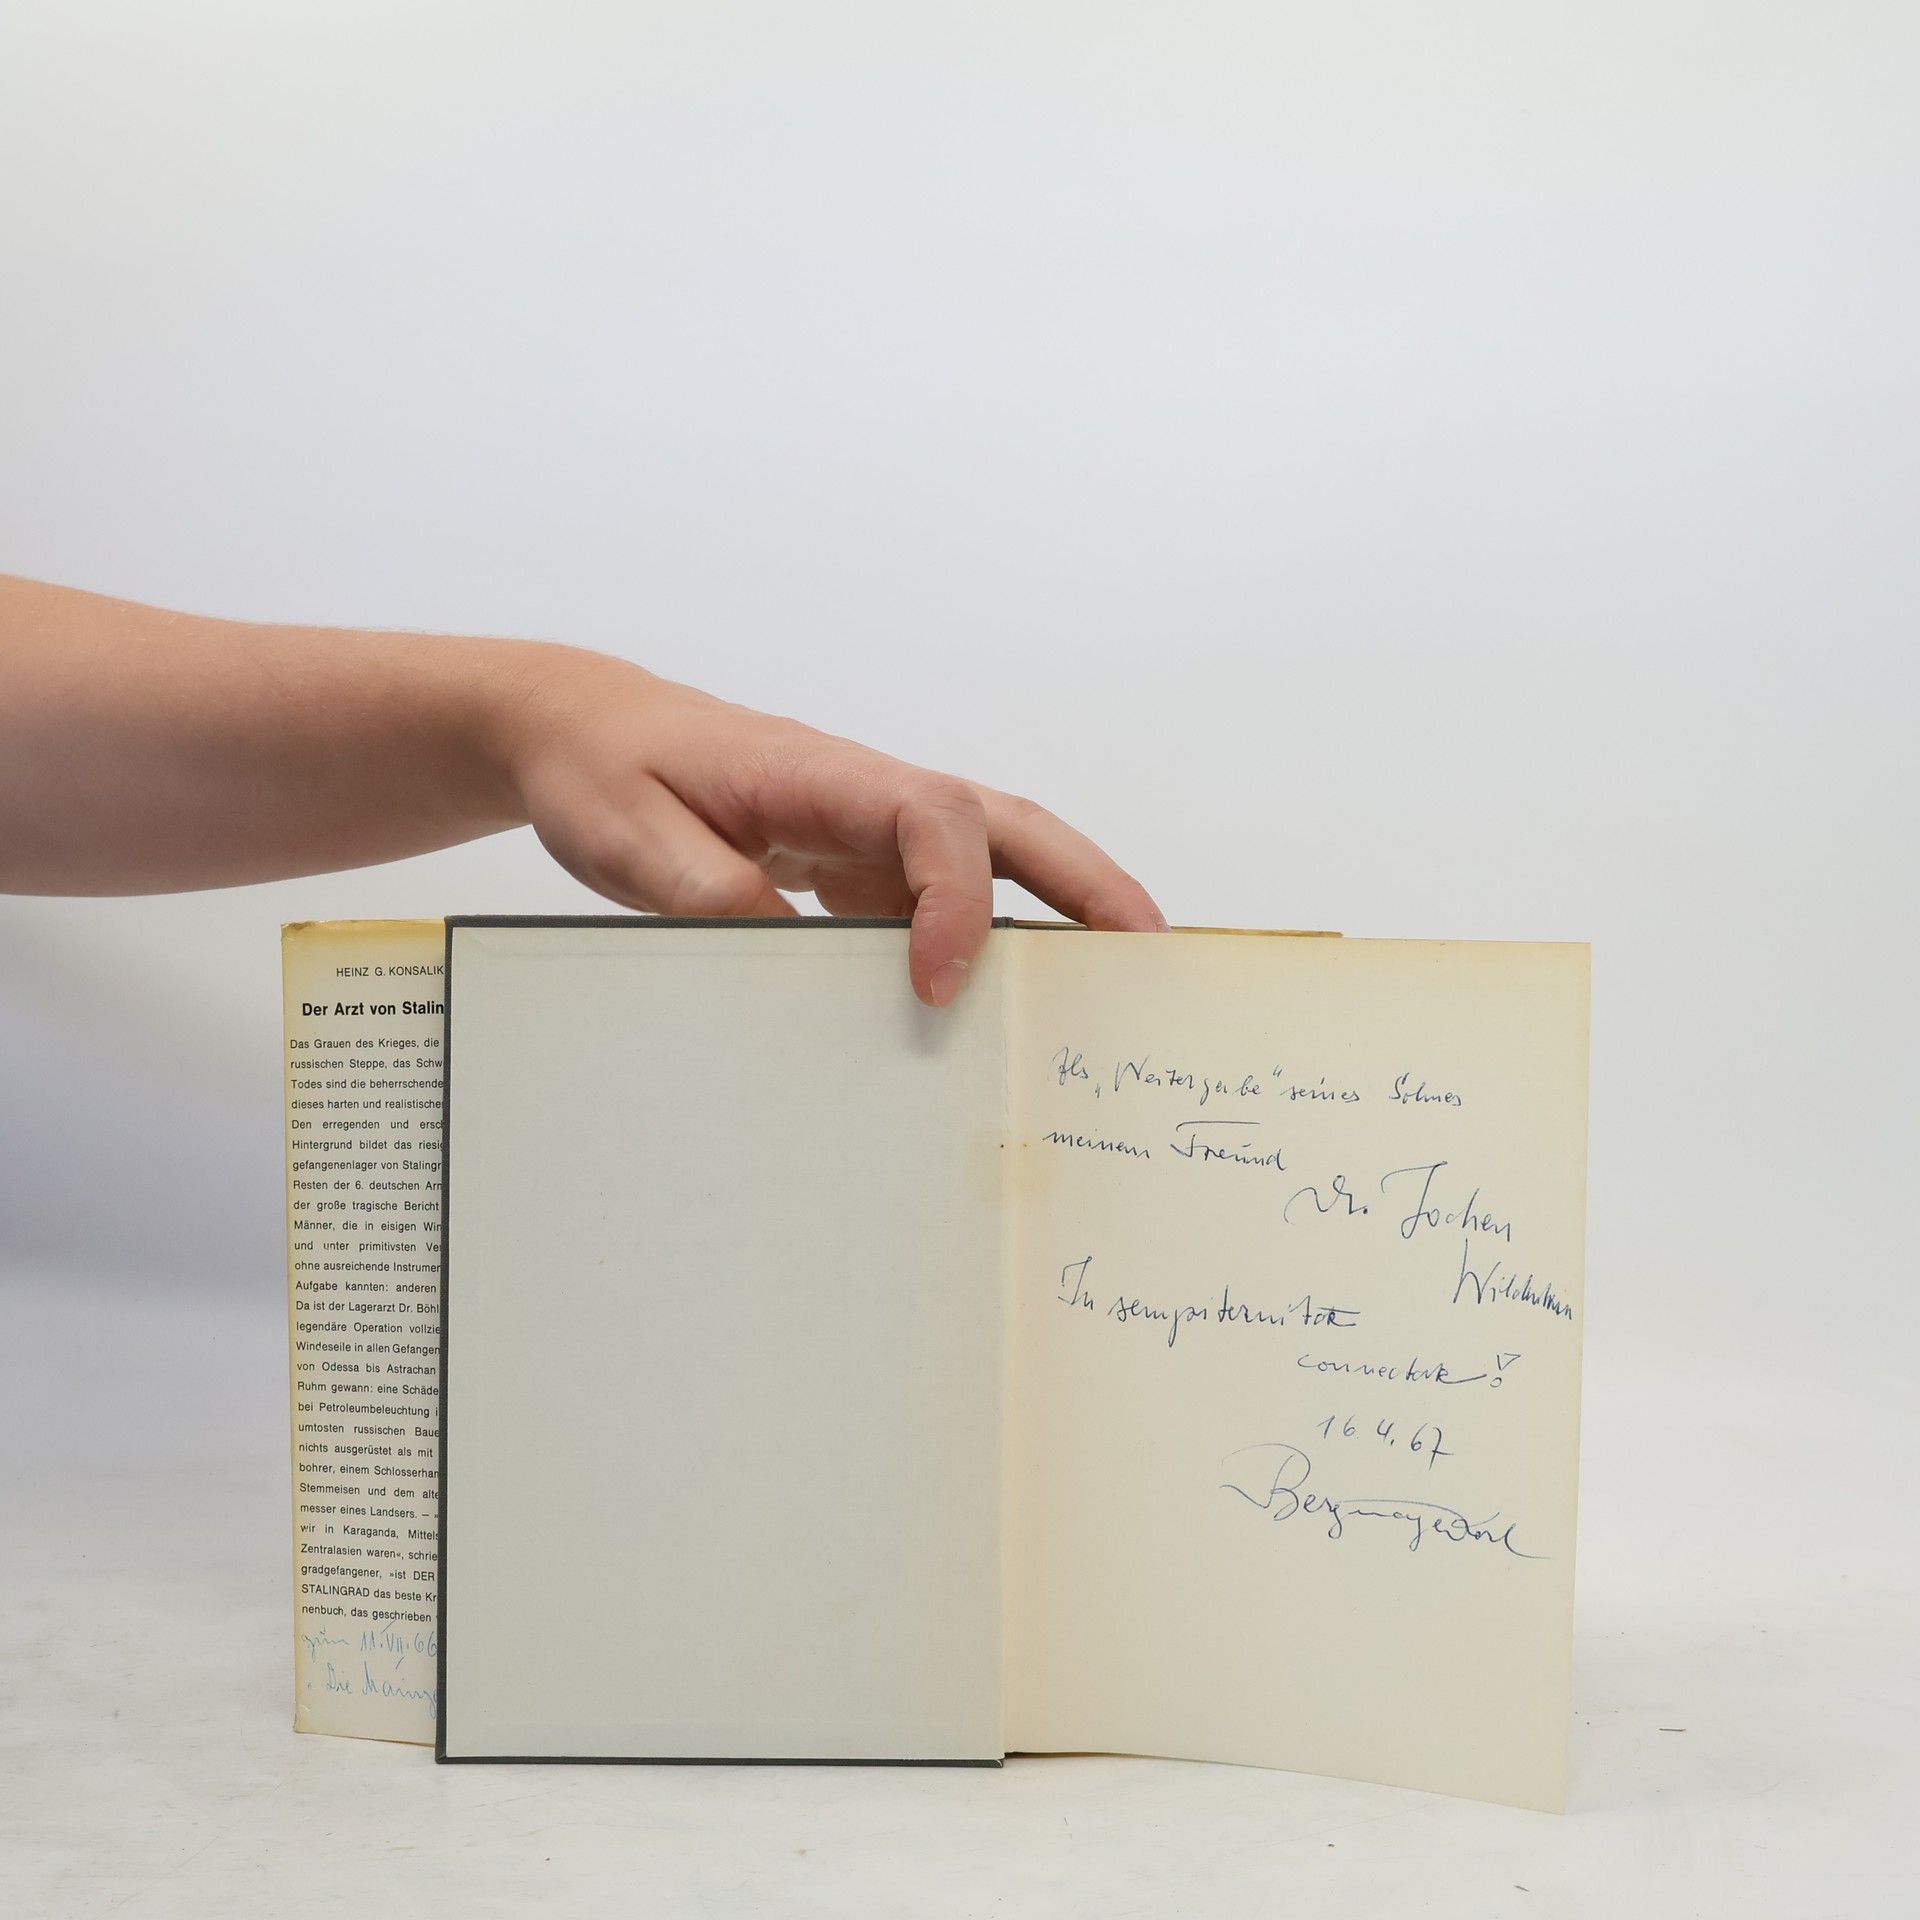 HEINZ G. KONSALIK
Der Arzt von Stalin
Das Grauen des Krieges, die
russischen Steppe, das Schw
Todes sind die beherrschende
dieses harten und realistische
Den erregenden und ersc
Hintergrund bildet das riesi
gefangenenlager von Stalingr
Resten der 6. deutschen Arm
der große tragische Bericht
Männer, die in eisigen Win
und unter primitivsten Ve
ohne ausreichende Instrumen
Aufgabe kannten: anderen
Da ist der Lagerarzt Dr. Böhl
legendäre Operation vollzie
Windeseile in allen Gefangen
von Odessa bis Astrachan
Ruhm gewann: eine Schäde
bei Petroleumbeleuchtung i
umtosten russischen Baue
nichts ausgerüstet als mit
bohrer, einem Schlosserham
Stemmeisen und dem alte
messer eines Landsers. — »
wir in Karaganda, Mittels
Zentralasien waren«, schrie
gradgefangener, »ist DER
STALINGRAD das beste Kr
nenbuch, das geschrieben
zum 11.VII.66
"Die Mainze
Als „Weitergabe" seines Sohnes
meinem Freund
Dr. Jochen
In sempiternitate
connectare!
16.4.67